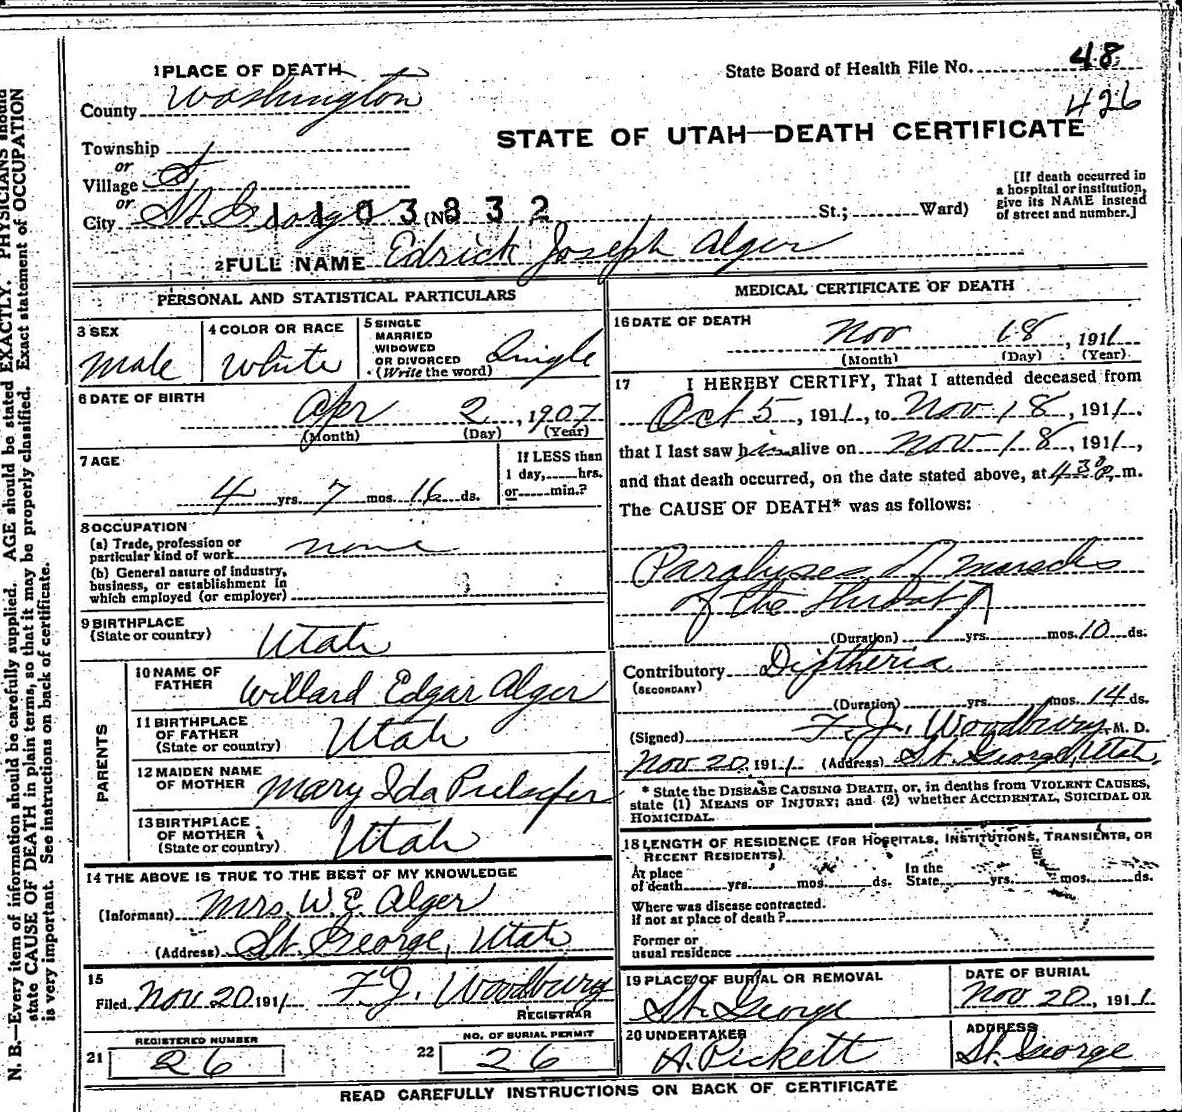 48
1 PLACE OF DEATH
State Board of Health File No.
426
County Washington
STATE OF UTAH—DEATH CERTIFICATE
Township
or
Village
or
City St. George (No. St.; Ward)
1103832
[If death occurred in
a hospital or institution,
give its NAME instead
of street and number.]
2 FULL NAME Edrick Joseph Alger
PERSONAL AND STATISTICAL PARTICULARS
3 SEX
Male
4 COLOR OR RACE
White
5 SINGLE
MARRIED
WIDOWED
OR DIVORCED
(Write the word)
Single
6 DATE OF BIRTH
Apr 2, 1907
(Month) (Day) (Year)
7 AGE
4 yrs. 7 mos. 16 ds.
If LESS than
1 day, hrs.
or min.?
8 OCCUPATION
(a) Trade, profession or
particular kind of work none
(b) General nature of industry,
business, or establishment in
which employed (or employer)
9 BIRTHPLACE
(State or country) Utah
PARENTS
10 NAME OF
FATHER Willard Edgar Alger
11 BIRTHPLACE
OF FATHER
(State or country) Utah
12 MAIDEN NAME
OF MOTHER Mary Ida Pulsifer
13 BIRTHPLACE
OF MOTHER
(State or country) Utah
14 THE ABOVE IS TRUE TO THE BEST OF MY KNOWLEDGE
(Informant) Mrs. W. E. Alger
(Address) St. George, Utah
15
Filed Nov 20 1911 F. J. Woodbury
REGISTRAR
REGISTERED NUMBER
21 26
NO. OF BURIAL PERMIT
22 26
MEDICAL CERTIFICATE OF DEATH
16 DATE OF DEATH
Nov 18, 1911
(Month) (Day) (Year)
17 I HEREBY CERTIFY, That I attended deceased from
Oct 5, 1911, to Nov 18, 1911.
that I last saw him alive on Nov 18, 1911,
and that death occurred, on the date stated above, at 4 30 p. m.
The CAUSE OF DEATH* was as follows:
Paralyses of muscles
of the throat
(Duration) yrs. mos. 10 ds.
Contributory Diptheria
(SECONDARY)
(Duration) yrs. mos. 14 ds.
(Signed) F. J. Woodbury, M. D.
Nov 20, 1911 (Address) St. George, Utah.
* State the DISEASE CAUSING DEATH, or, in deaths from VIOLENT CAUSES,
state (1) MEANS OF INJURY; and (2) whether ACCIDENTAL, SUICIDAL OR
HOMICIDAL.
18 LENGTH OF RESIDENCE (FOR HOSPITALS, INSTITUTIONS, TRANSIENTS, OR
RECENT RESIDENTS)
At place
of death yrs. mos. ds.
In the
State yrs. mos. ds.
Where was disease contracted.
if not at place of death?
Former or
usual residence
19 PLACE OF BURIAL OR REMOVAL
St. George
DATE OF BURIAL
Nov 20, 1911
20 UNDERTAKER
A. Pickett
ADDRESS
St. George
READ CAREFULLY INSTRUCTIONS ON BACK OF CERTIFICATE
N. B.—Every item of information should be carefully supplied. AGE should be stated EXACTLY. PHYSICIANS should
state CAUSE OF DEATH in plain terms, so that it may be properly classified. Exact statement of OCCUPATION
is very important. See instructions on back of certificate.